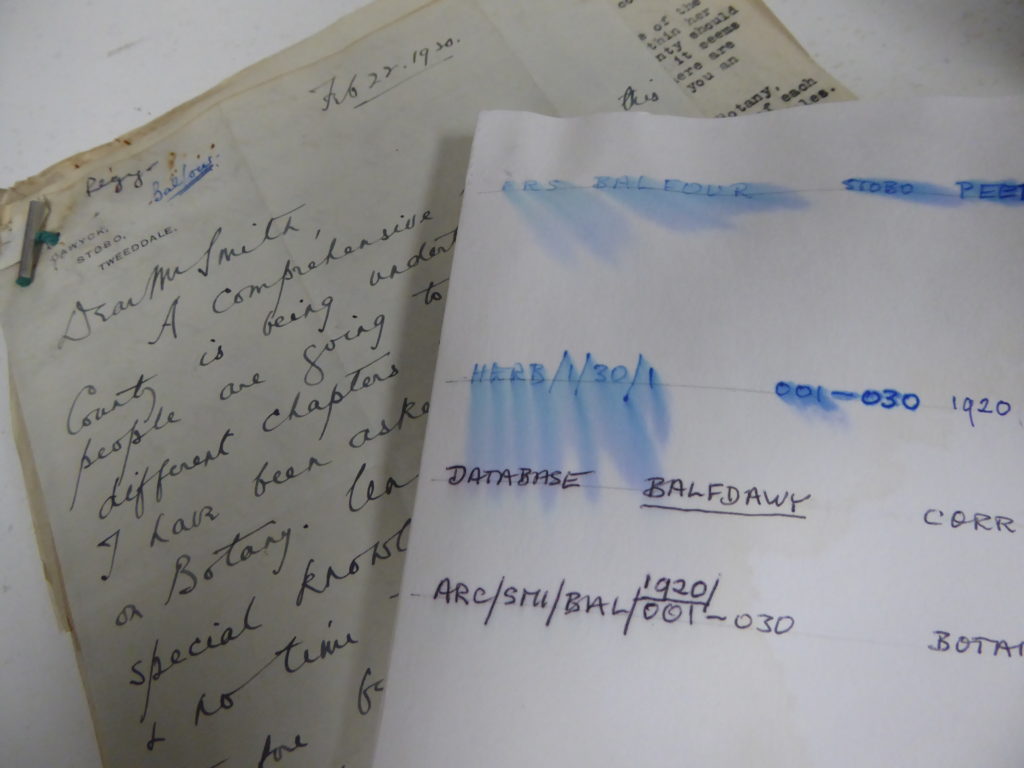 e of the
thin her
nty should
it seems
ere are
you an
Botany,
of each
les.
this
Feb 22. 1920.
Balfour
DAWYCK,
STOBO,
TWEEDDALE.
Dear Mr Smith,
A comprehensive
County is being undert
people are going to
different chapters
I have been aske
on Botany.
special knowl
& no time
fore
ERS BALFOUR STOBO PEEB
HERB/1/30/1 001-030 1920
DATABASE BALFDAWY CORR
ARC/SMI/BAL/1920/001-030 BOTAN